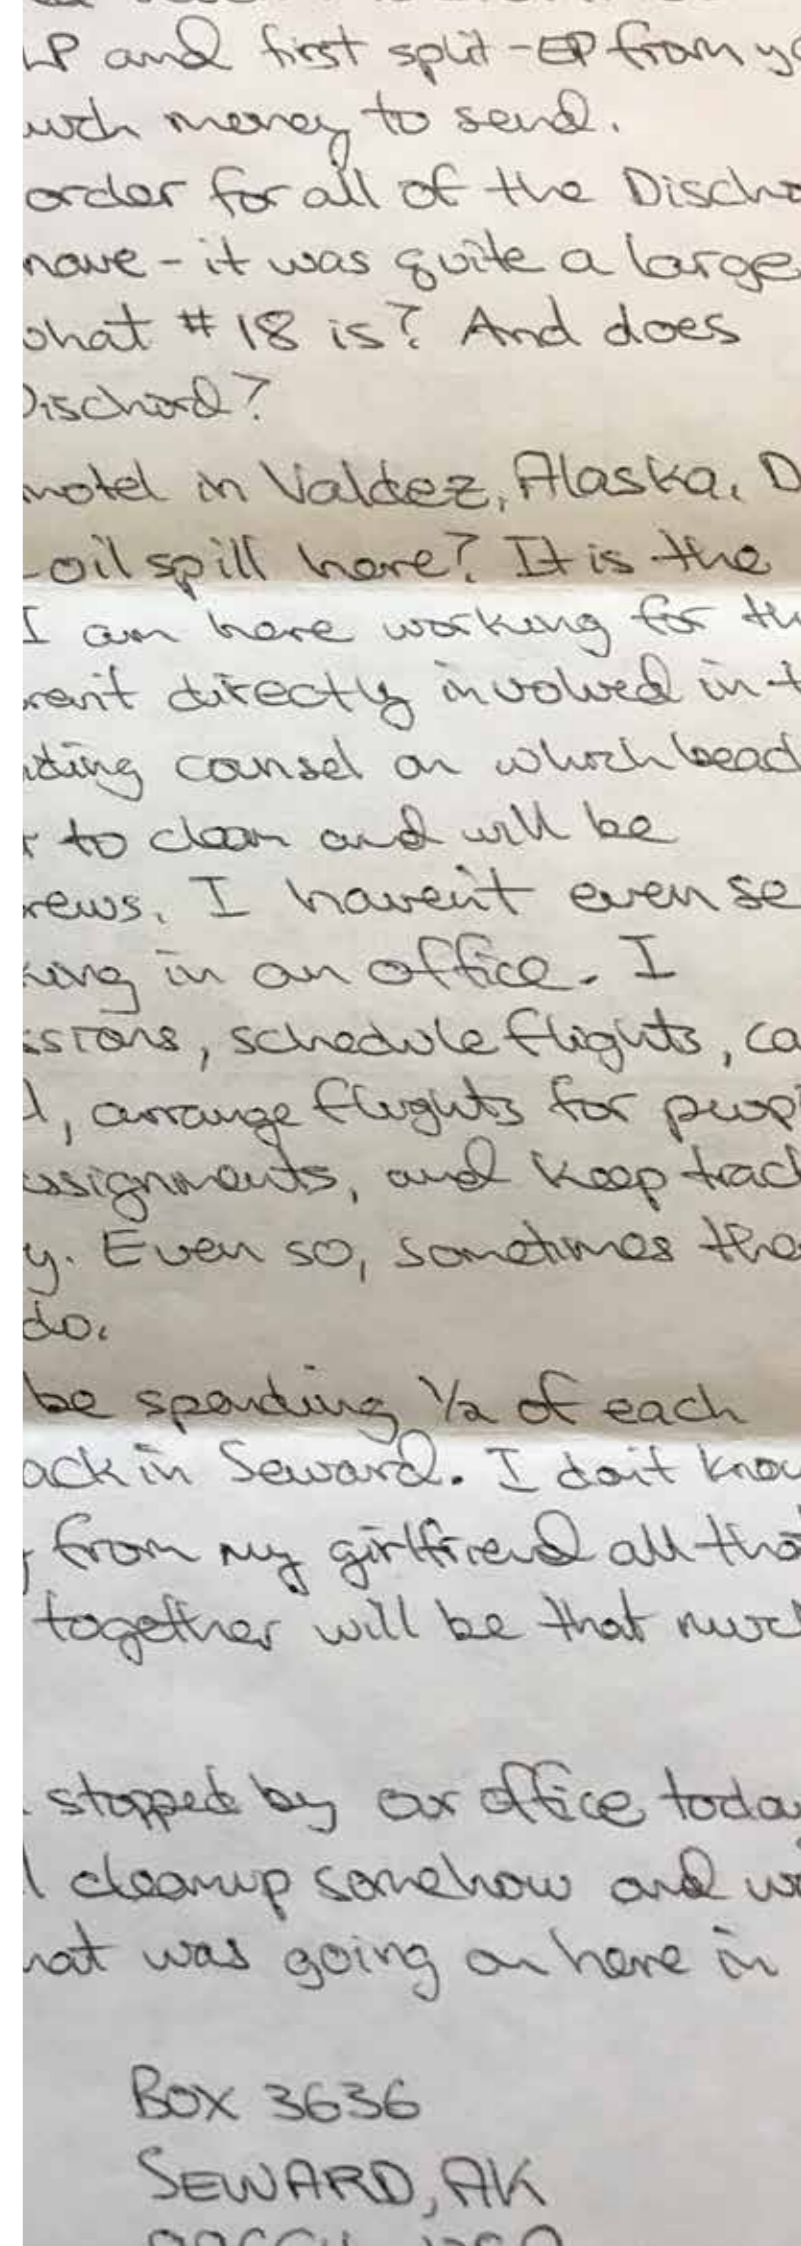 LP and first split-EP from
money to send.
order for all of the Discho
have - it was quite a large
what #18 is? And does
Dischord?
motel in Valdez, Alaska. D
oil spill here? It is the
I am here working for th
directly involved in t
counsel on which beac
to clean and will be
rews. I haven't even se
king in an office. I
ssions, schedule flights, ca
, arrange flights for peopl
assignments, and keep track
y. Even so, sometimes the
do.
be spending 1/2 of each
ack in Seward. I don't know
from my girlfriend all tha
together will be that much
stopped by our office today
cleanup somehow and w
hat was going on here in
BOX 3636
SEWARD, AK